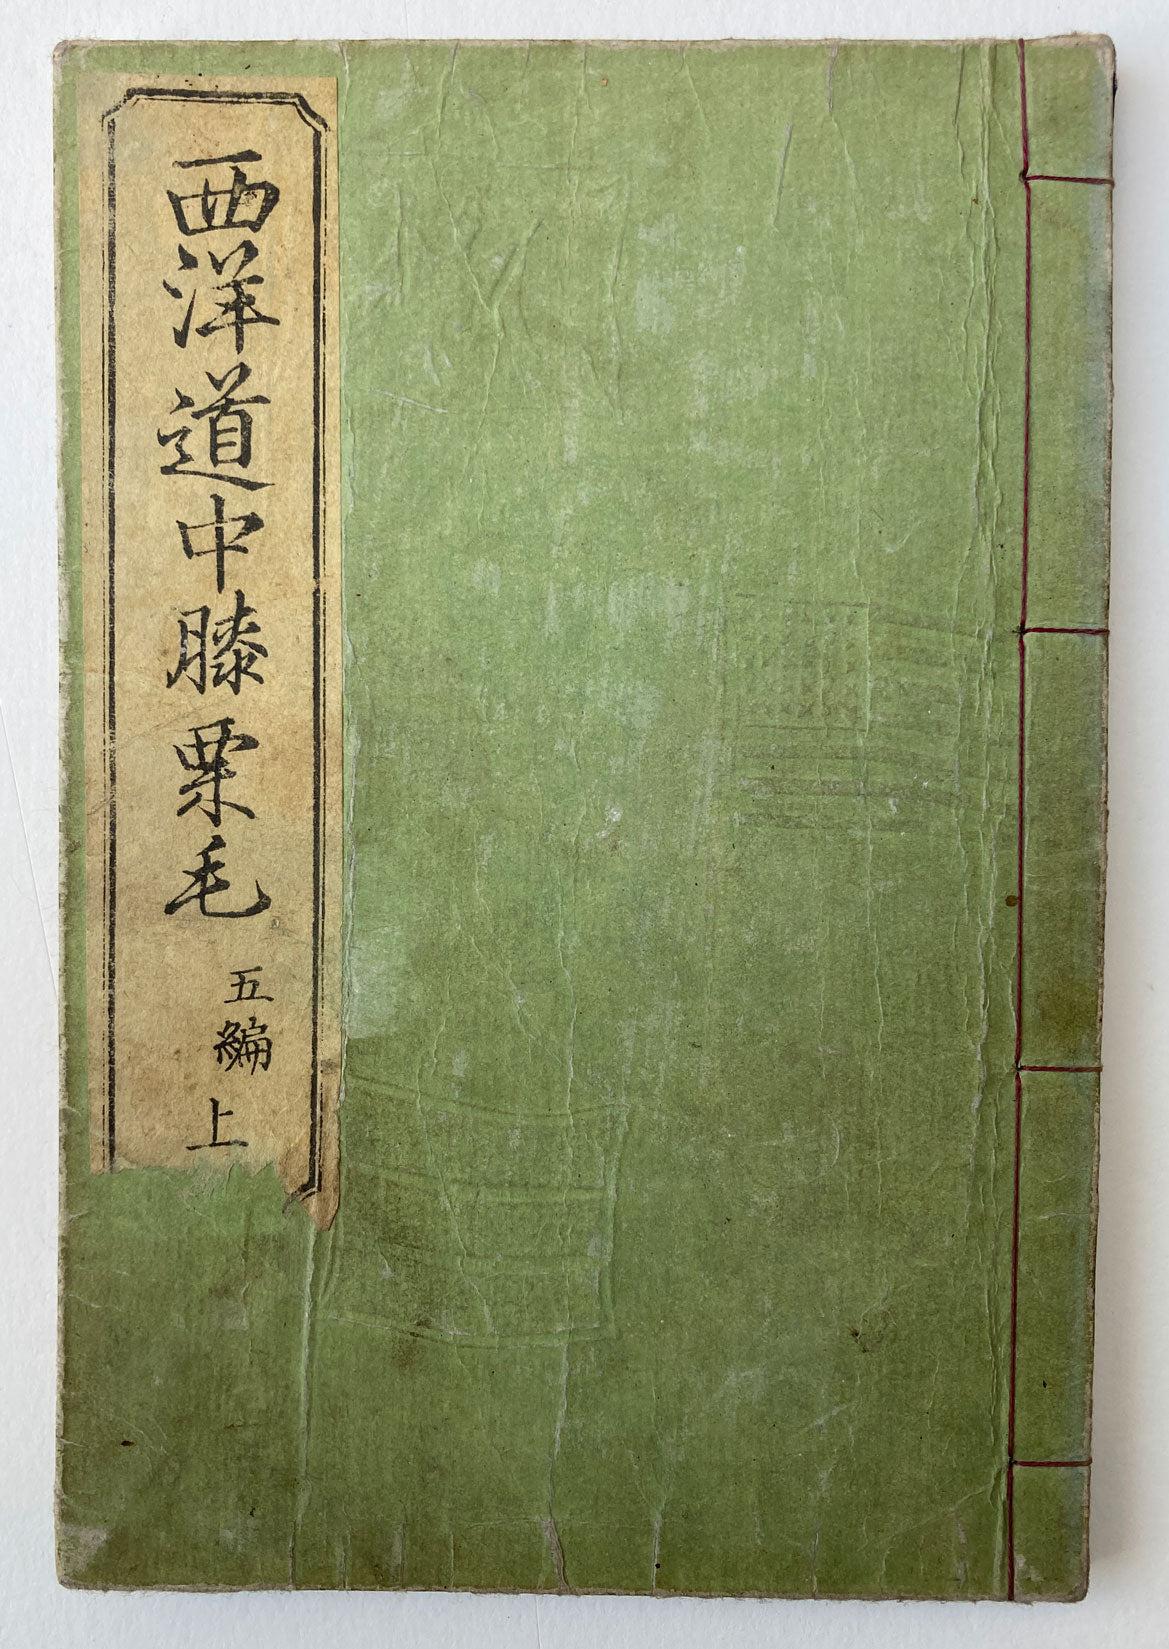 西洋道中膝栗毛
五編
上